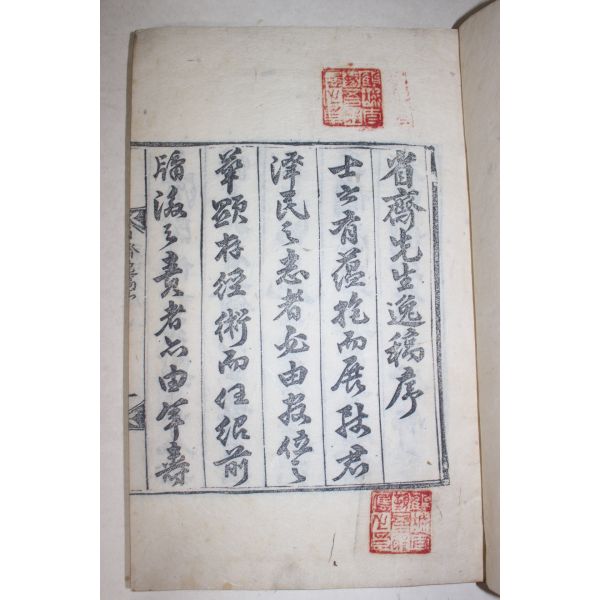 省齋先生逸稿序
士之有蘊抱而展致君
澤民之志者必由位之
華顯存經術而任紹前
牖後之責者亦由年壽